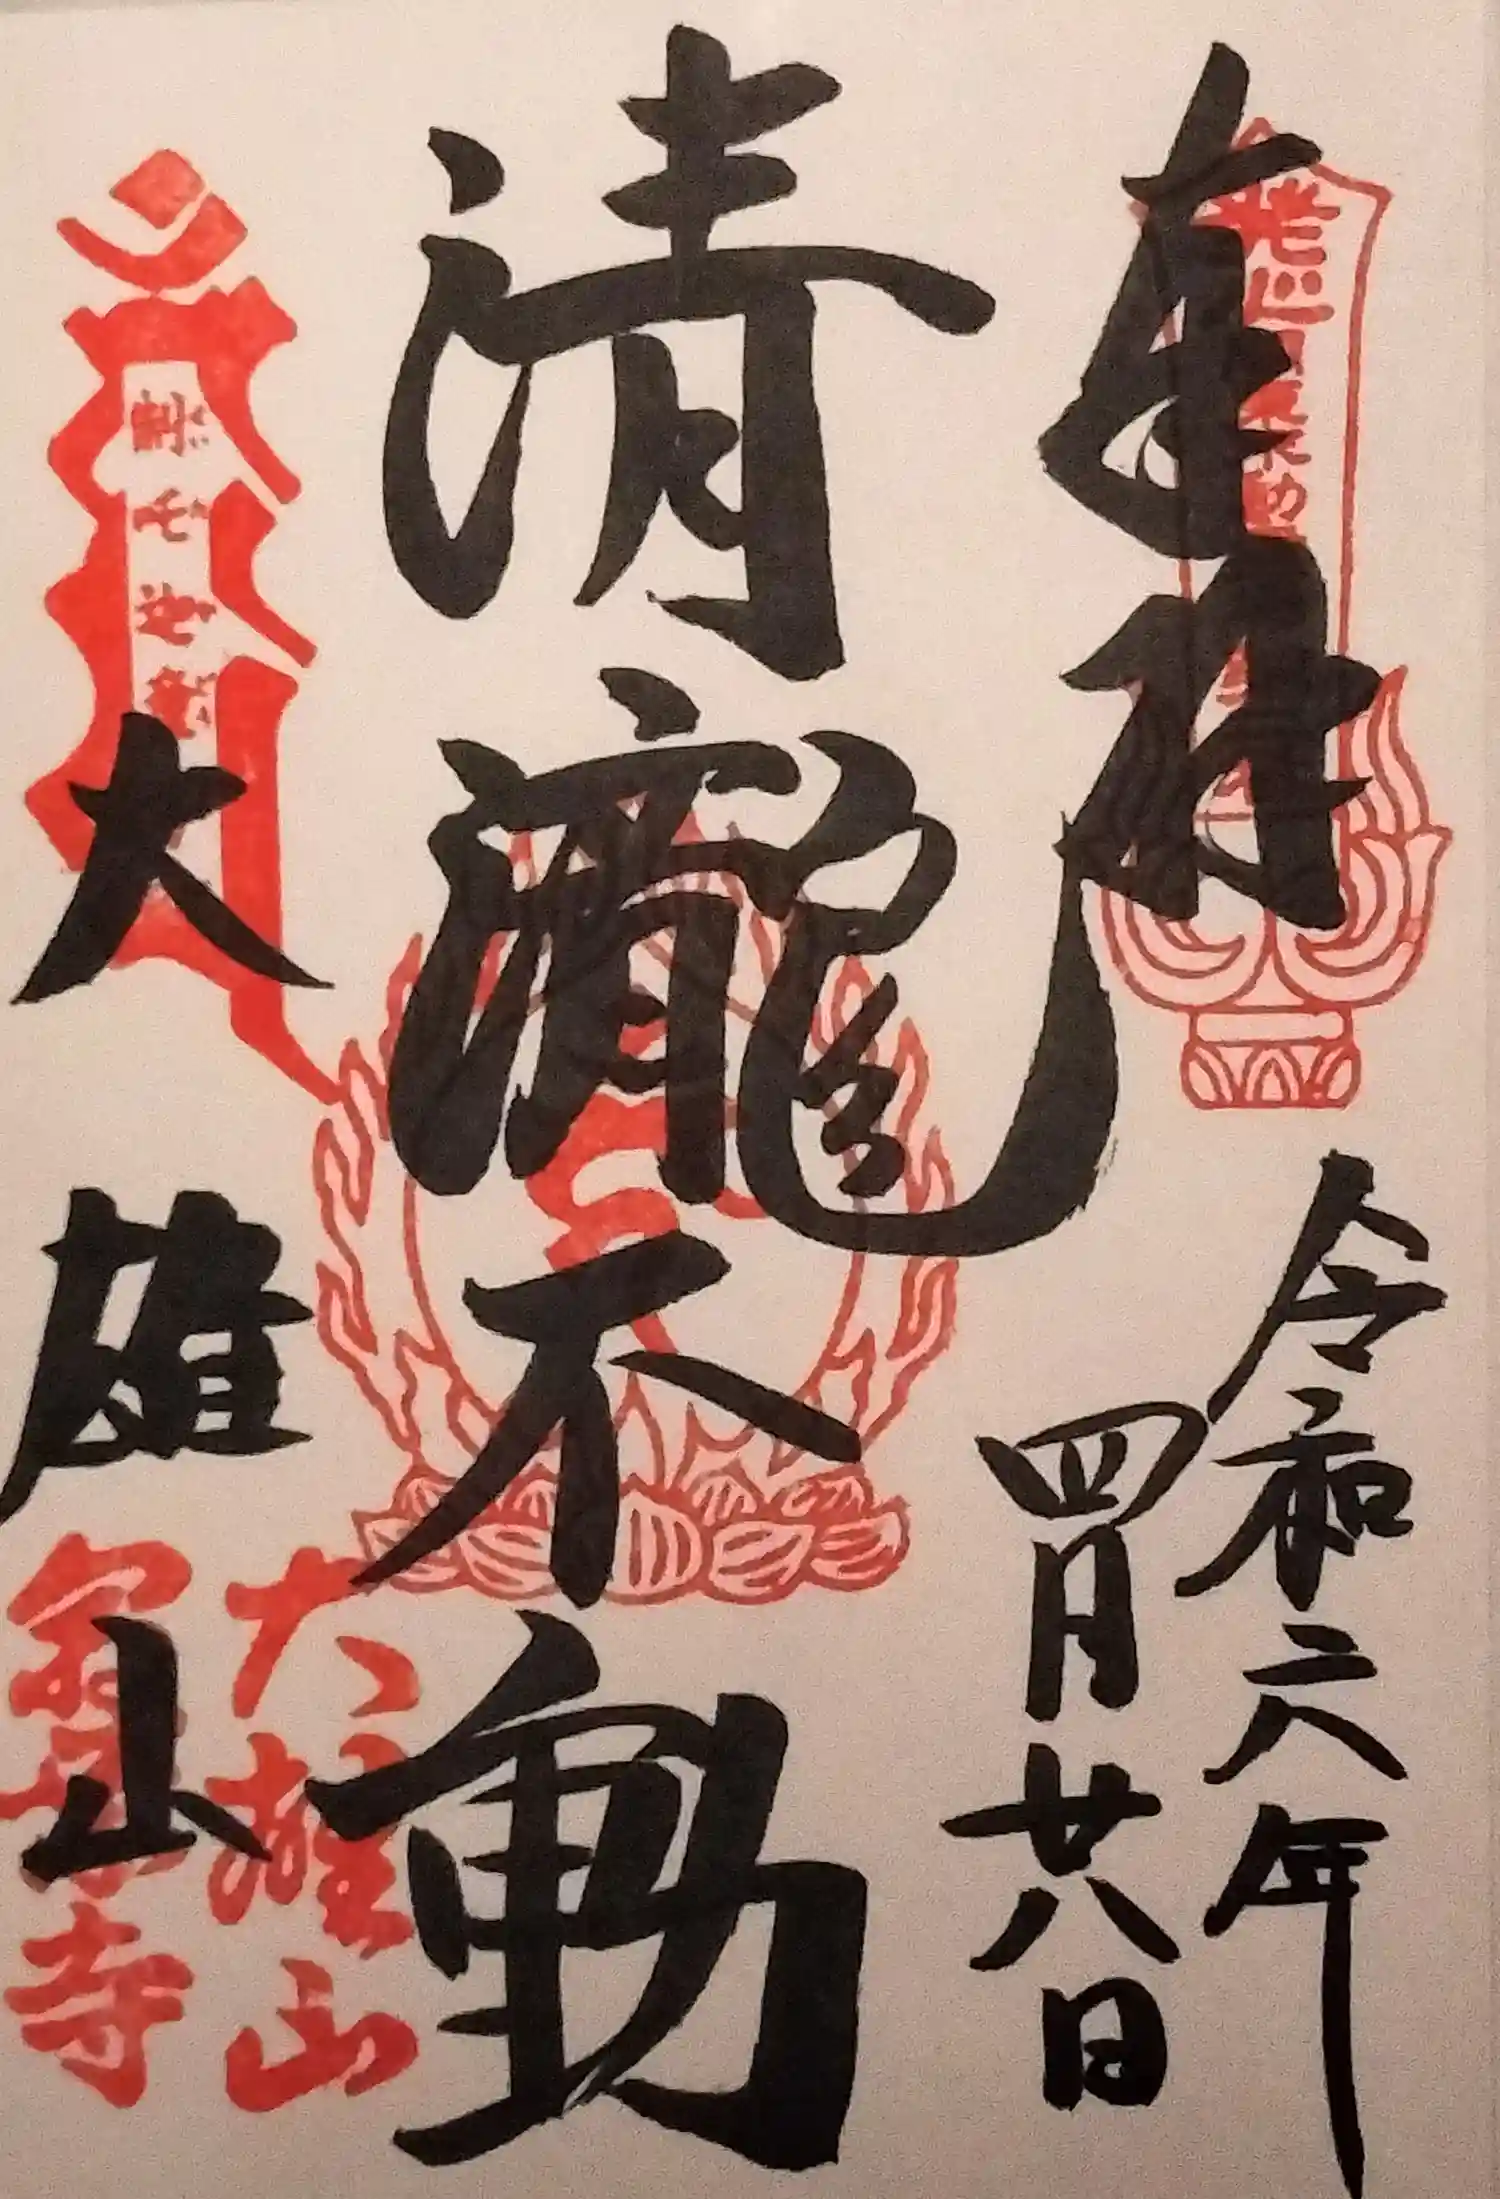 奉拝
令和六年
四月廿八日
清瀧不動
大雄山
大雄山
最乗寺